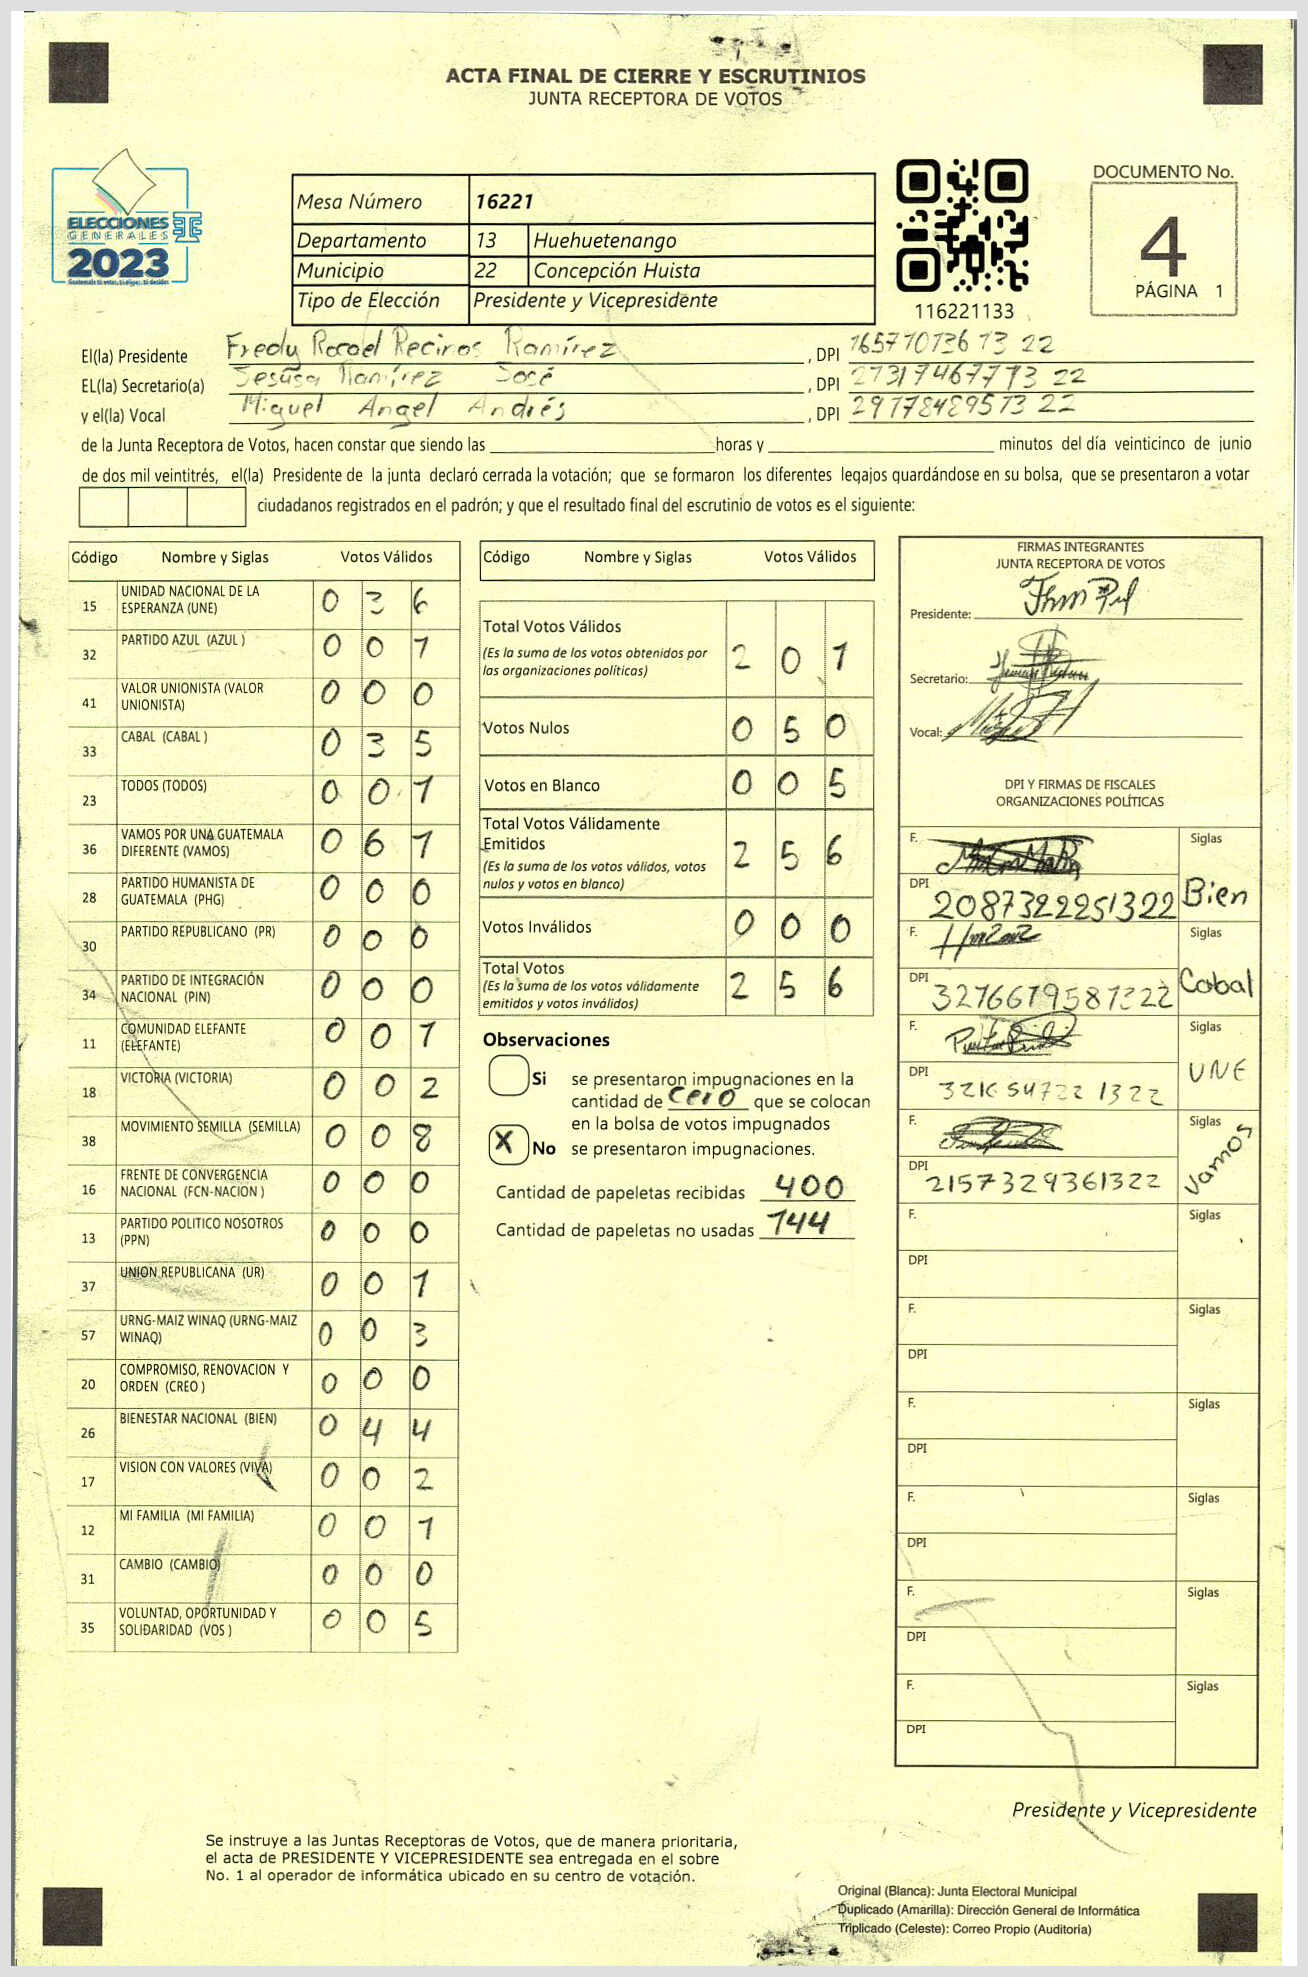 ACTA FINAL DE CIERRE Y ESCRUTINIOS
JUNTA RECEPTORA DE VOTOS
ELECCIONES
GENERALES
2023
Mesa Número 16221
Departamento 13 Huehuetenango
Municipio 22 Concepción Huista
Tipo de Elección Presidente y Vicepresidente
116221133
DOCUMENTO No.
4
PÁGINA 1
El(la) Presidente Fredy Rocael Recinos Ramírez , DPI 165710136 13 22
EL(la) Secretario(a) Jesusa Ramírez José , DPI 273174677 13 22
y el(la) Vocal Miguel Angel Andrés , DPI 291784895 13 22
de la Junta Receptora de Votos, hacen constar que siendo las horas y minutos del día veinticinco de junio
de dos mil veintitrés, el(la) Presidente de la junta declaró cerrada la votación; que se formaron los diferentes legajos quardándose en su bolsa, que se presentaron a votar
ciudadanos registrados en el padrón; y que el resultado final del escrutinio de votos es el siguiente:
Código Nombre y Siglas Votos Válidos
15 UNIDAD NACIONAL DE LA ESPERANZA (UNE) 0 3 6
32 PARTIDO AZUL (AZUL ) 0 0 1
41 VALOR UNIONISTA (VALOR UNIONISTA) 0 0 0
33 CABAL (CABAL ) 0 3 5
23 TODOS (TODOS) 0 0 1
36 VAMOS POR UNA GUATEMALA DIFERENTE (VAMOS) 0 6 1
28 PARTIDO HUMANISTA DE GUATEMALA (PHG) 0 0 0
30 PARTIDO REPUBLICANO (PR) 0 0 0
34 PARTIDO DE INTEGRACIÓN NACIONAL (PIN) 0 0 0
11 COMUNIDAD ELEFANTE (ELEFANTE) 0 0 1
18 VICTORIA (VICTORIA) 0 0 2
38 MOVIMIENTO SEMILLA (SEMILLA) 0 0 8
16 FRENTE DE CONVERGENCIA NACIONAL (FCN-NACION ) 0 0 0
13 PARTIDO POLITICO NOSOTROS (PPN) 0 0 0
37 UNION REPUBLICANA (UR) 0 0 1
57 URNG-MAIZ WINAQ (URNG-MAIZ WINAQ) 0 0 3
20 COMPROMISO, RENOVACION Y ORDEN (CREO ) 0 0 0
26 BIENESTAR NACIONAL (BIEN) 0 4 4
17 VISION CON VALORES (VIVA) 0 0 2
12 MI FAMILIA (MI FAMILIA) 0 0 1
31 CAMBIO (CAMBIO) 0 0 0
35 VOLUNTAD, OPORTUNIDAD Y SOLIDARIDAD (VOS ) 0 0 5
Código Nombre y Siglas Votos Válidos
Total Votos Válidos 2 0 1
(Es la suma de los votos obtenidos por
las organizaciones políticas)
Votos Nulos 0 5 0
Votos en Blanco 0 0 5
Total Votos Válidamente
Emitidos 2 5 6
(Es la suma de los votos válidos, votos
nulos y votos en blanco)
Votos Inválidos 0 0 0
Total Votos 2 5 6
(Es la suma de los votos válidamente
emitidos y votos inválidos)
Observaciones
Si se presentaron impugnaciones en la
cantidad de cero que se colocan
en la bolsa de votos impugnados
X No se presentaron impugnaciones.
Cantidad de papeletas recibidas 400
Cantidad de papeletas no usadas 144
FIRMAS INTEGRANTES
JUNTA RECEPTORA DE VOTOS
Presidente:
Secretario:
Vocal:
DPI Y FIRMAS DE FISCALES
ORGANIZACIONES POLÍTICAS
F. Siglas
DPI 2087322251322 Bien
F. Siglas
DPI 3276679581322 Cabal
F. Siglas
DPI 321654722 1322 UNE
F. Siglas
DPI 2157329361322 Vamos
F. Siglas
DPI
F. Siglas
DPI
F. Siglas
DPI
F. Siglas
DPI
F. Siglas
DPI
F. Siglas
DPI
Presidente y Vicepresidente
Se instruye a las Juntas Receptoras de Votos, que de manera prioritaria,
el acta de PRESIDENTE Y VICEPRESIDENTE sea entregada en el sobre
No. 1 al operador de informática ubicado en su centro de votación.
Original (Blanca): Junta Electoral Municipal
Duplicado (Amarilla): Dirección General de Informática
Triplicado (Celeste): Correo Propio (Auditoria)